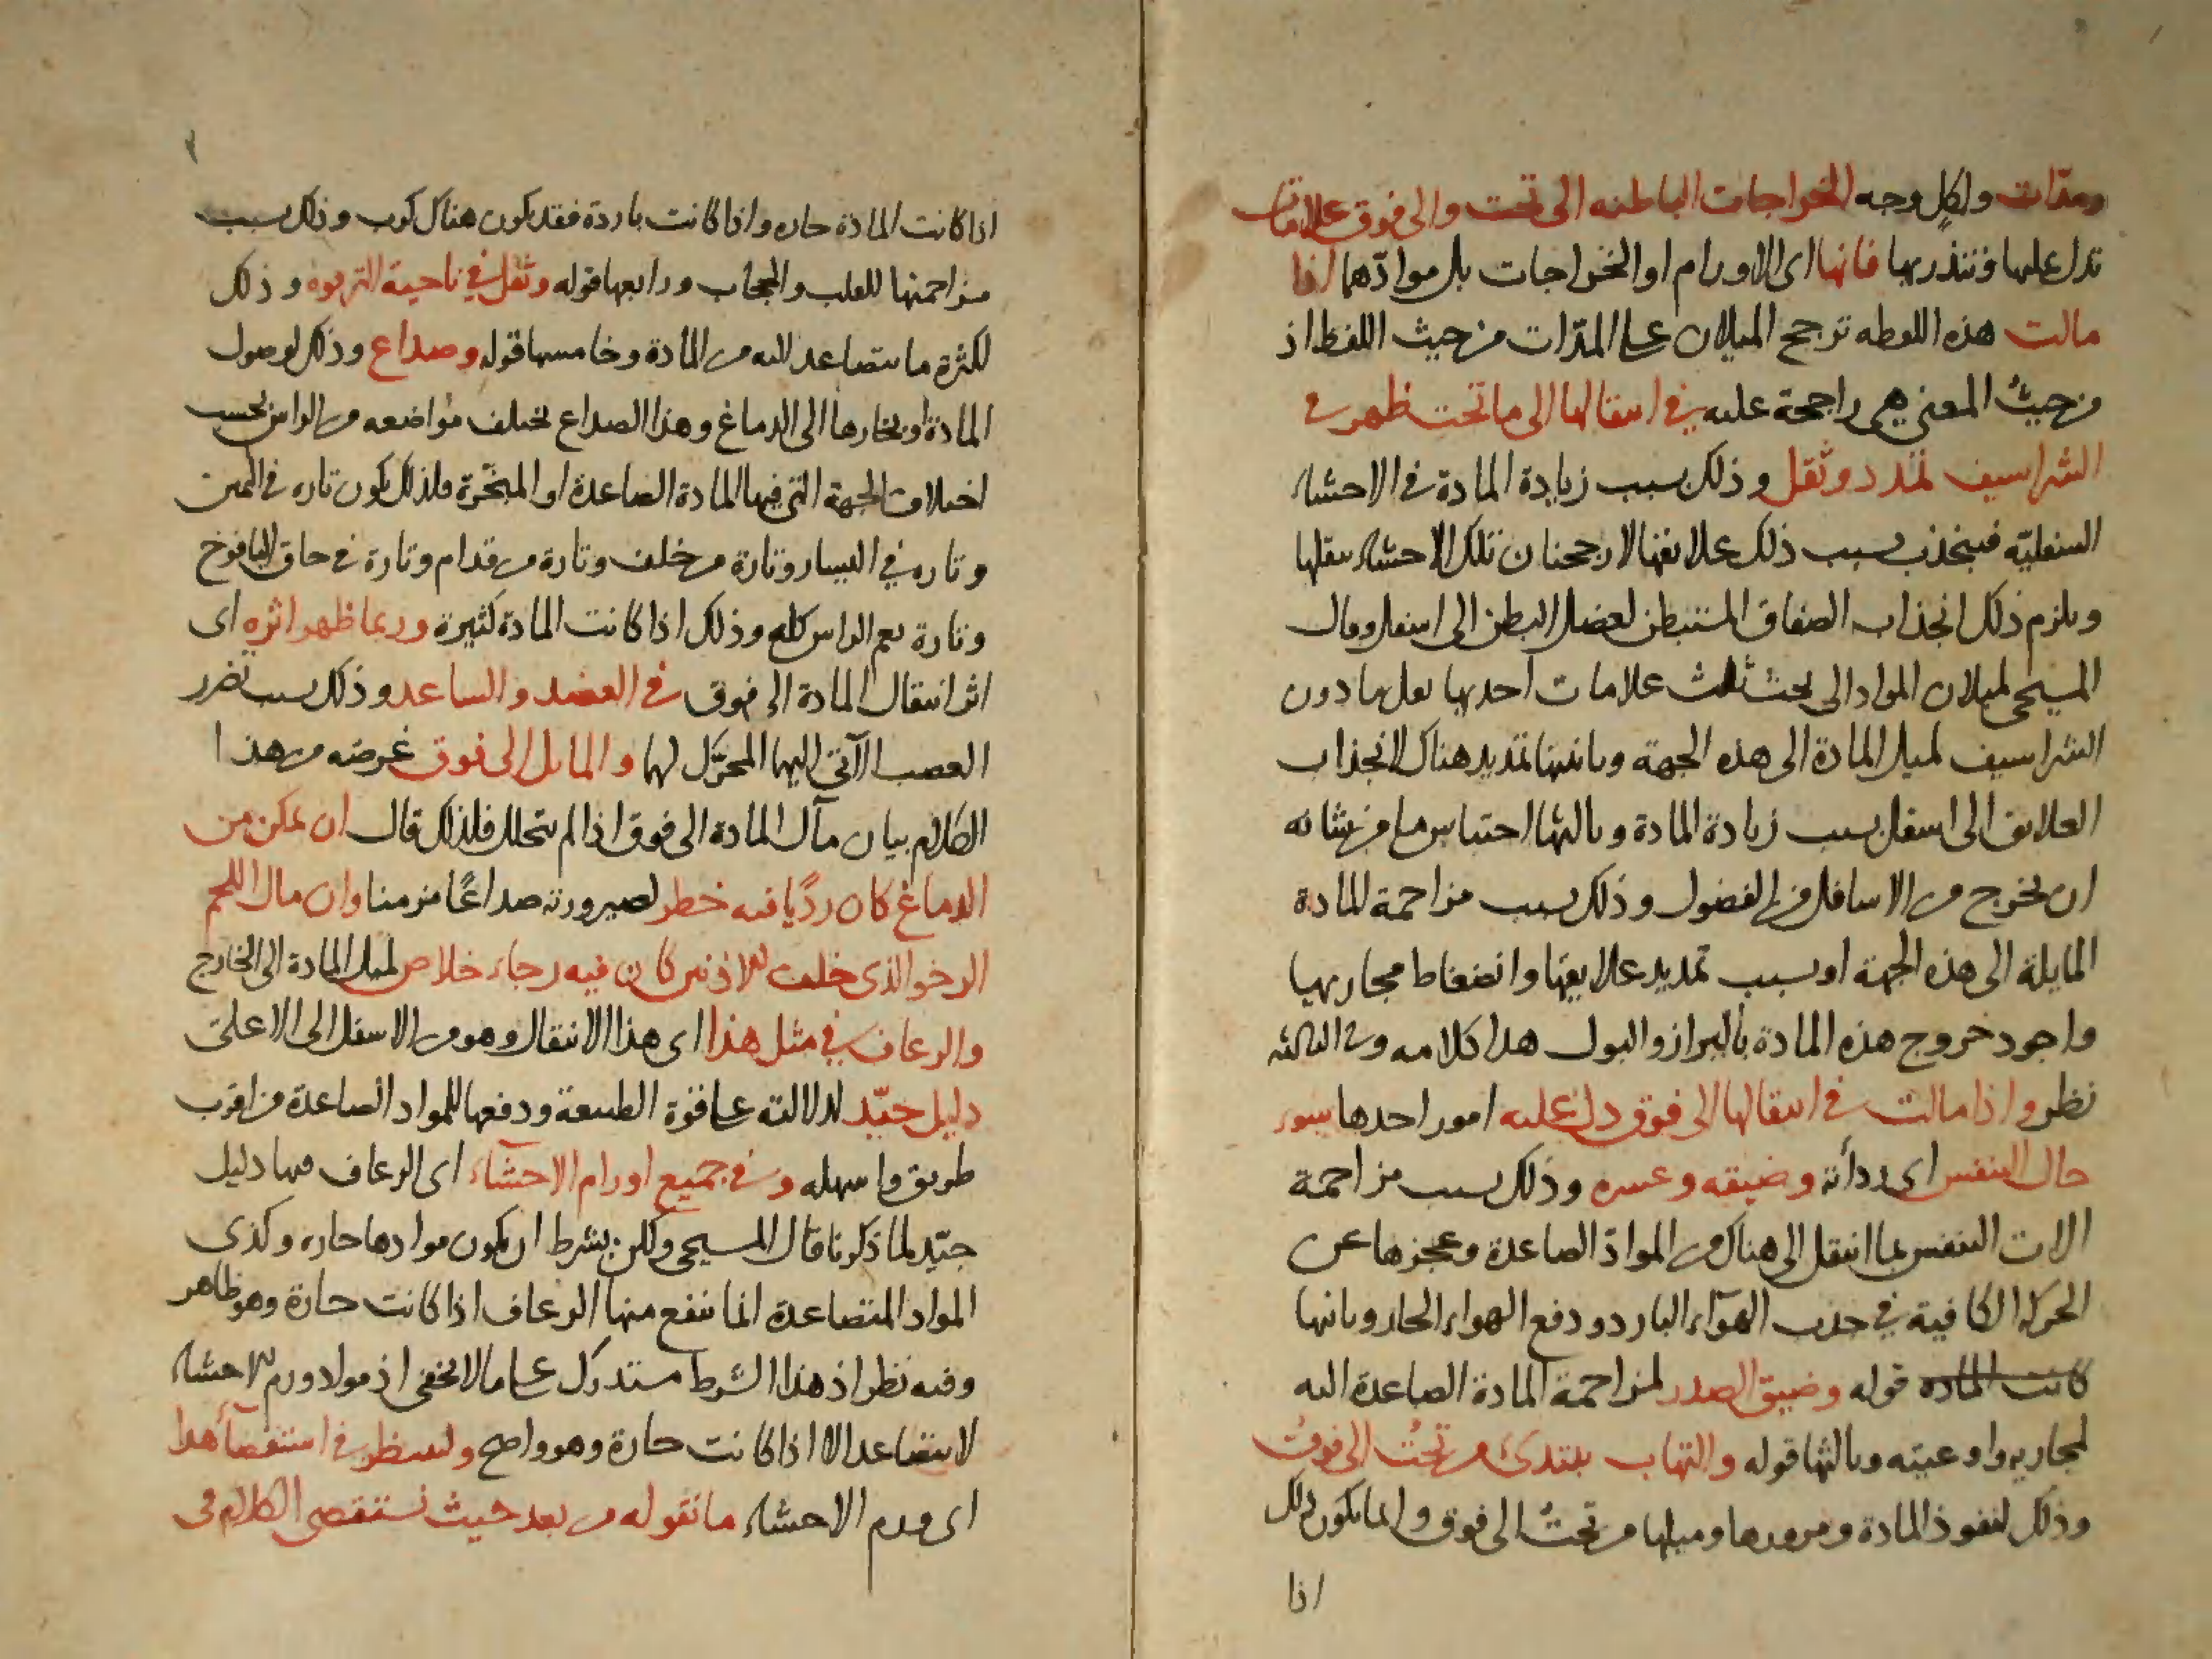 ومدّات ولكل وجه الخراجات الباطنه الى تحت والى فوق علامات
تدل عليها وتنذر بها فانها اى الاورام او الخراجات بل موادّهما اذا
مالت هذه اللفظه ترجح الميلان على المدّات من حيث اللفظ اذ
من حيث المعنى هى راجحة عليه فى انتقالها الى ما تحت ظهر فى
الشراسيف تمدد وثقل وذلك بسبب زيادة المادة فى الاحشاء
السفليّة فينجذب بسبب ذلك علايقها لارجحنان تلك الاحشاء بثقلها
ويلزم ذلك انجذاب الصفاق المستبطن لعضل البطن الى اسفل وقال
المسيحى لميلان المواد الى تحت ثلث علامات احديها ثقل ما دون
الشراسيف لميل المادة الى هذه الجهة وثانيتها تمديد هناك لانجذاب
العلايق الى اسفل بسبب زيادة المادة وثالثها احتباس ما من شانه
ان يخرج من الاسافل من الفضول وذلك بسبب مزاحمة المادة
المايلة الى هذه الجهة او بسبب تمديد علايقها وانضغاط مجاريها
واجود خروج هذه المادة بالبراز والبول هذا كلامه وفى الثالثه
نظر واذا مالت فى انتقالها الى فوق دل عليه امور احدها سوء
حال النفس اى رداءته وضيقه وعسره وذلك بسبب مزاحمة
الات التنفس بما انتقل الى هناك من الموادّ الصاعدة وعجزها عن
الحركة الكافية فى جذب الهوآء البارد ودفع الهواء الحار وثانيها
كانت المادة قوله وضيق الصدر لمزاحمة المادة الصاعدة اليه
لمجاريه واوعيته وثالثها قوله والتهاب يبتدئ من تحت الى فوق
وذلك لنفوذ المادة ومرورها وميلها من تحت الى فوق وانما يكون ذلك
اذا
اذا كانت المادة حاره واذا كانت باردة فقد يكون هناك كرب وذلك بسبب
مزاحمتها للقلب والحجاب ورابعها قوله وثقل فى ناحية الترقوه وذلك
لكثرة ما يتصاعد اليه من المادة وخامسها قوله وصداع وذلك لوصول
المادة او بخارها الى الدماغ وهذا الصداع تختلف مواضعه من الراس بحسب
اختلاف الجهة التى فيها المادة الصاعدة او المبخّرة ولذلك يكون تاره فى اليمين
وتاره فى اليسار وتارة من خلف وتارة من قدام وتارة فى حاق اليافوخ
وتارة يعم الراس كله وذلك اذا كانت المادة كثيرة وربما ظهر اثره اى
اثر انتقال المادة الى فوق فى العضد والساعد وذلك بسبب تضرر
العصب الآتى اليها المحرّك لها والمايل الى فوق غرضه من هذا
الكلام بيان مآل المادة الى فوق اذا لم يتحلل فلذلك قال ان تمكن من
الدماغ كان رديّا فيه خطر لصيرورته صداعًا مزمنا وان مال اللحم
الرخو الذى خلف الاذنين كان فيه رجاء خلاص لميل المادة الى الخارج
والرعاف فى مثل هذا اى هذا الانتقال وهو من الاسفل الى الاعلى
دليل جيّد لدلالته على قوة الطبيعة ودفعها للمواد الصاعدة من اقرب
طريق واسهله وفى جميع اورام الاحشآء اى الرعاف فيها دليل
جيّد لما ذكرنا قال المسيحى ولكن بشرط ان يكون موادها حاره وكذى
المواد المتصاعدة انما ينفع منها الرعاف اذا كانت حارة وهو ظاهر
وفيه نظر اذ هذا الشرط مستدرك على ما لا يخفى اذ مواد ورم الاحشاء
لا يتصاعد الا اذا كانت حارة وهو واضح ولينتظر فى استقصآء هذا
اى ورم الاحشاء ما نقوله من بعد حيث نستقصى الكلام فى